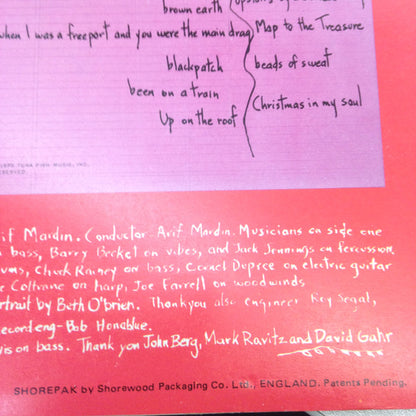 brown earth
when I was a freeport and you were the main drag
Map to the Treasure
blackpatch
beads of sweat
been on a train
Christmas in my soul
Up on the roof
TUNA FISH MUSIC, INC.
if Mardin. Conductor-Arif Mardin. Musicians on side one
bass, Barry Becket on vibes, and Jack Jennings on percussion
ums, Chuck Rainey on bass, Cornel Dupree on electric guitar
e Coltrane on harp, Joe Farrell on woodwinds
rtrait by Beth O'brien. Thankyou also engineer Roy Segal,
ecord eng-Bob Honablue.
vis on bass. Thank you John Berg, Mark Ravitz and David Gahr
SHOREPAK by Shorewood Packaging Co. Ltd., ENGLAND. Patents Pending.